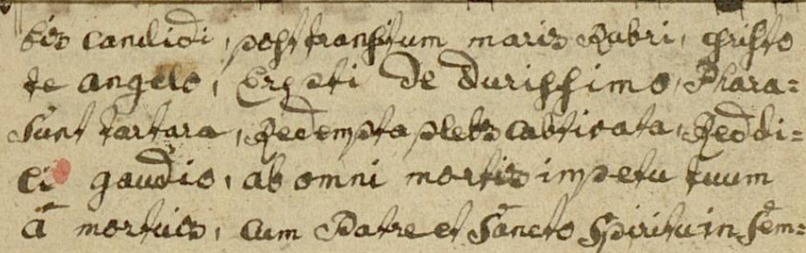 bis candidi, post transitum maris Rubri, christo
te angelo, Erepti de durissimo, Phara=
sunt tartara, Redempta plebs captivata, Reddi=
ci gaudio, ab omni mortis impetu tuum
â mortuis, cum Patre et Sancto Spiritu in Sem=